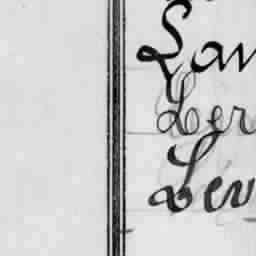 Law
Ler
Lev